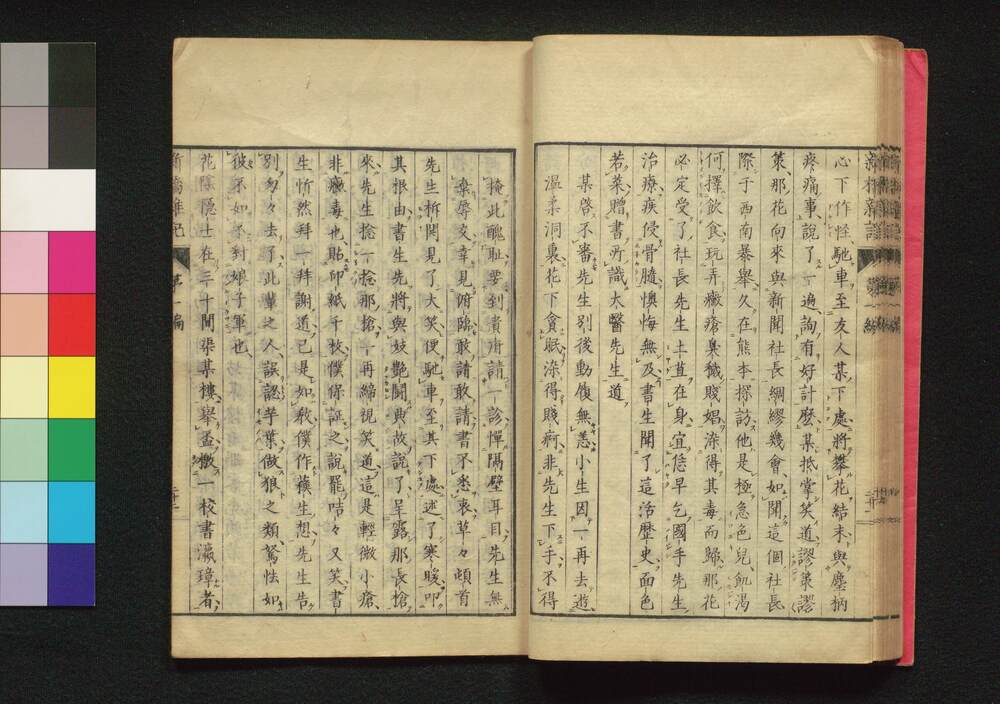 心下作怪、馳車至友人某下處將攀花結末與塵柄
疼痛事、說了一遍詢有好計麽某抵掌笑道謬策謬
策、那花向來與新聞社長綢繆幾會、如聞這個社長
際于西南暴擧、久在熊本探訪他是極急色兒、飢渴
何擇飲食玩弄黴瘡臭穢賤娼染得其毒而歸那花
必定受了社長先生土宜在身宜恁早乞國手先生
治療、疾侵骨髓懊悔無及書生聞了這活歷史面色
若菜贈書所識大醫先生道
某啓、不審先生別後動履無恙小生因一再去遊
溫柔洞裏花下貪眠染得賤痾非先生下手不得
掩此醜恥要到貴府請一診憚隔壁耳目先生無
棄辱交幸見俯臨敢請敢請書不悉衷草々頓首
先生拆開見了大笑便馳車至其下處述了寒暖叩
其根由書生先將與妓艷鬪典故說了呈露那長槍
來先生捻一捻那槍一再締視笑道這是輕微小瘡
非黴毒也貼印紙千枚僕保証之說罷咭々又笑書
生忻然拜一拜謝道已是如敎僕作蘇生想先生告
別匆々去了此輩之人誤認芋葉做狼之類駑怯如
彼不如不對娘子軍也
花陰隱士在三十間渠某樓擧盃檄一校書瀛璋者
第一編